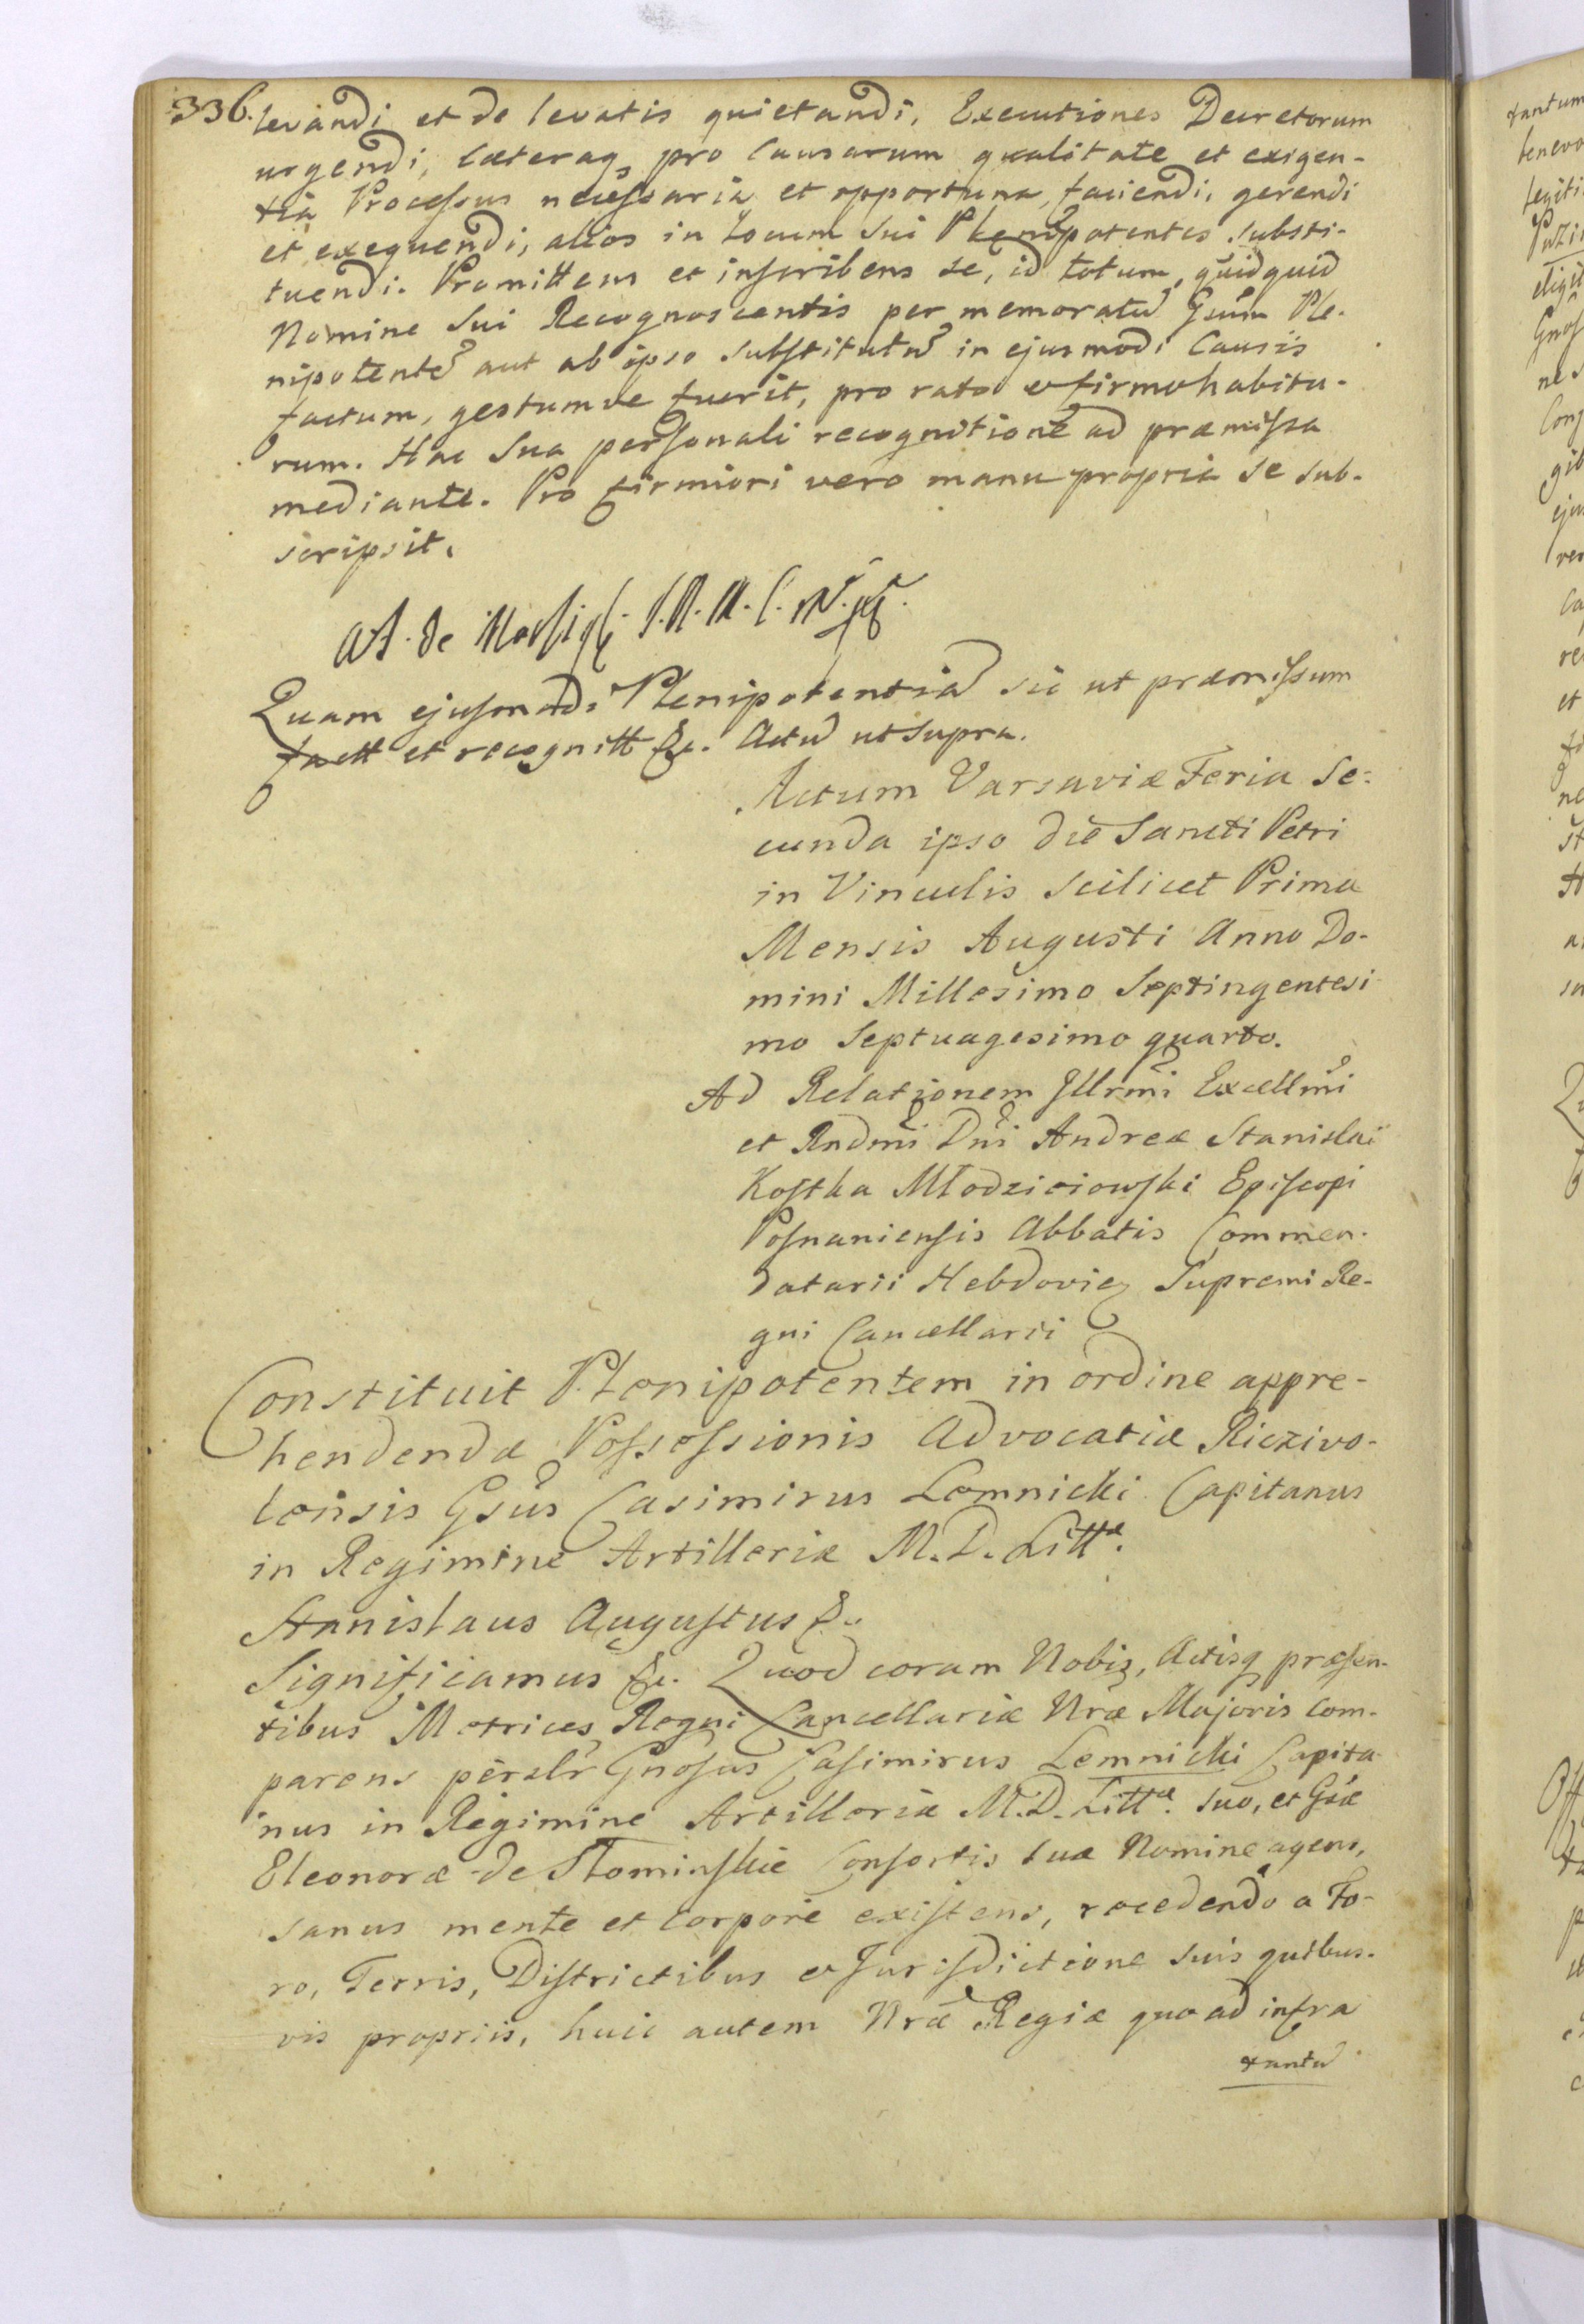 336.
levandi et de levatis quietandi, Executiones Decretorum
urgendi, cæteraq pro Causarum qualitate et exigen-
tia Processus necessaria et opportuna, faciendi, gerendi
et exequendi, alios in Locum sui Plenipotentes substi-
tuendi. Promittens et inscribens se, id totum, quidquid
Nomine sui Recognoscentis per memoratũ Gsum Ple-
nipotentẽ aut ab ipso substitutũ in ejusmodi Causis
factum, gestumve fuerit, pro rato et firmo habitu-
rum. Hac sua personali recognitione ad præmissa
mediante. Pro firmiori vero manu propria se sub-
scripsit.
de
Quam ejusmodi Plenipotentiã sic ut præmissum
factt et recognitt &c. Actũ ut supra.
Actum Varsaviæ Feria Se-
cunda ipso die Sancti Petri
in Vinculis scilicet Prima
Mensis Augusti Anno Do-
mini Millesimo Septingentesi
mo Septuagesimo quarto.
Ad Relationem Jllrmi Excellmi
et Rndmi Dni Andreæ Stanislai
Kostka Młodzieiowski Episcopi
Posnaniensis Abbatis Commen-
datarii Hebdovien Supremi Re-
gni Cancellarii
Constituit Plenipotentem in ordine appre-
hendendæ Possessionis Advocatiæ Riczivo-
lensis Gsus Casimirus Lemnicki Capitanus
in Regimine Artilleriæ M. D. Littæ.
Stanislaus Augustus &.
Significamus &c. Quod coram Nobis, Actisq præsen-
tibus Metrices Regni Cancellariæ Nræ Majoris com-
parens persłr Gnosus Casimirus Lemnicki Capita-
nus in Regimine Artilleriæ M.D. Littæ. suo, et Gsæ
Eleonoræ de Słominskie Consortis suæ Nomine agens,
sanus mente et corpore existens, recedendo a Fo-
ro, Terris, Districtibus et Jurisdictione suis quibus-
vis propriis, huic autem Nræ Regiæ quo ad infra
tantũ